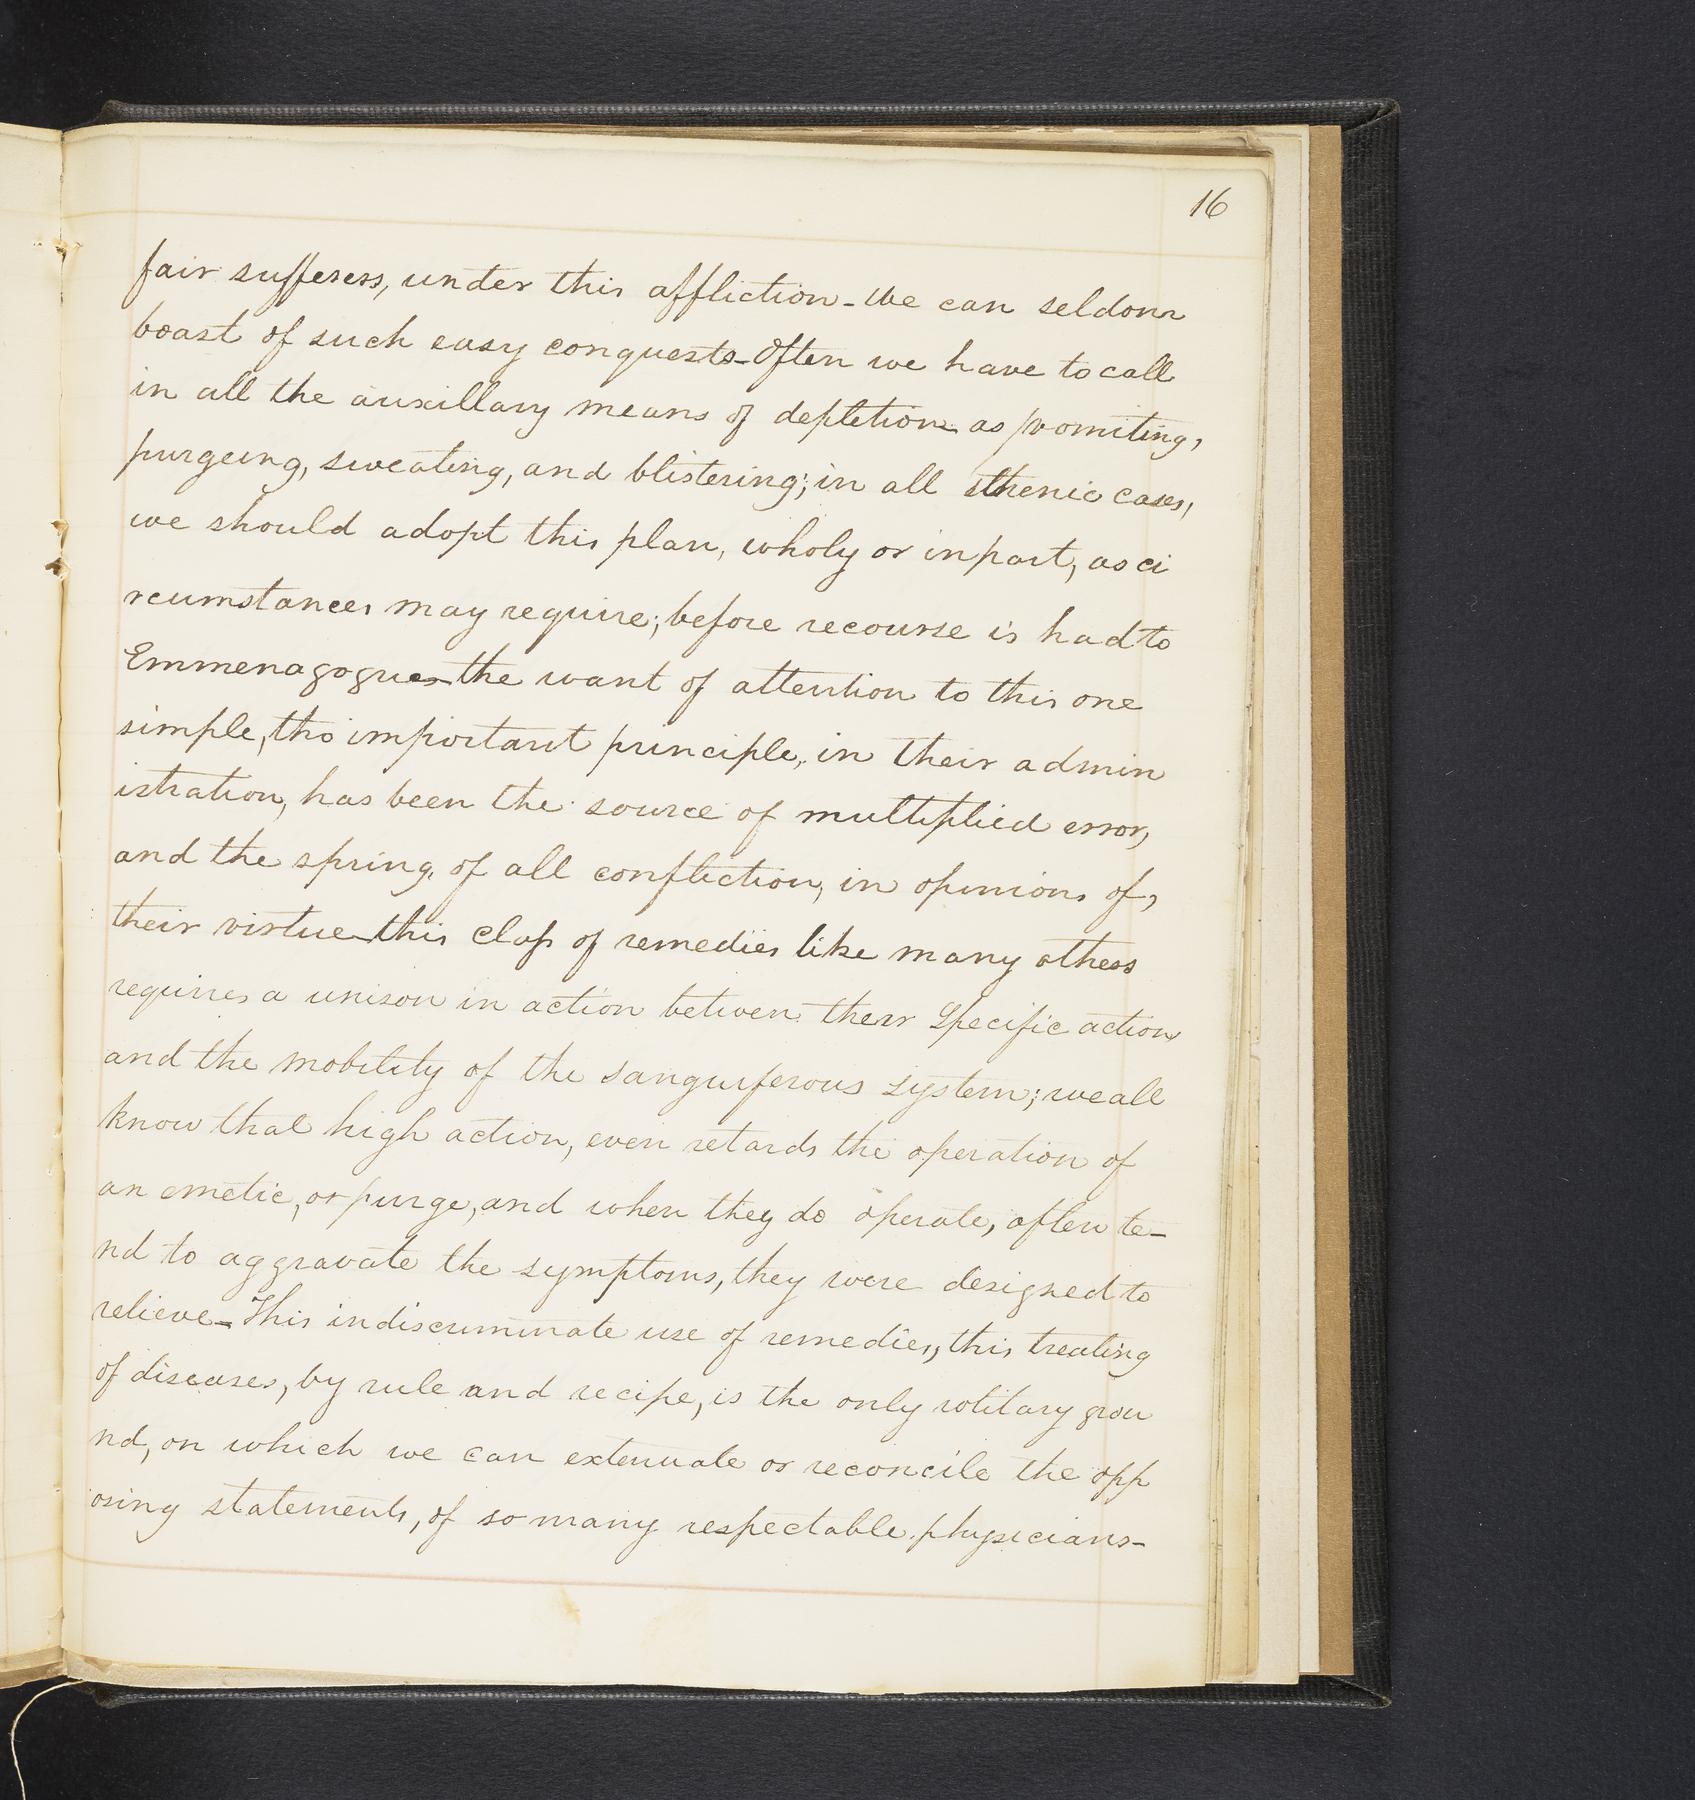 16
fair sufferers, under this affliction_ We can seldom
boast of such easy conquests_ Often we have to call
in all the auxillary means of depletion as vomiting,
purgeing, sweating, and blistering; in all sthenic cases,
we should adopt this plan, wholy or in part, as ci
rcumstances may require; before recourse is had to
Emmenagogues_ the want of attention to this one
simple, tho important principle, in their admin
istration, has been the source of multiplied error,
and the spring, of all confliction, in opinions of,
their virtue_ this class of remedies like many others
requires a unison in action between their Specific action
and the mobility of the sanguiferous system; we all
know that high action, even retards the operation of
an emetic, or purge, and when they do operate, often te_
nd to aggravate the symptoms, they were designed to
relieve_ This indiscriminate use of remedies, this treating
of diseases, by rule and recipe, is the only solitary grou
nd, on which we can extenuate or reconcile the opp
osing statements, of so many respectable physicians_